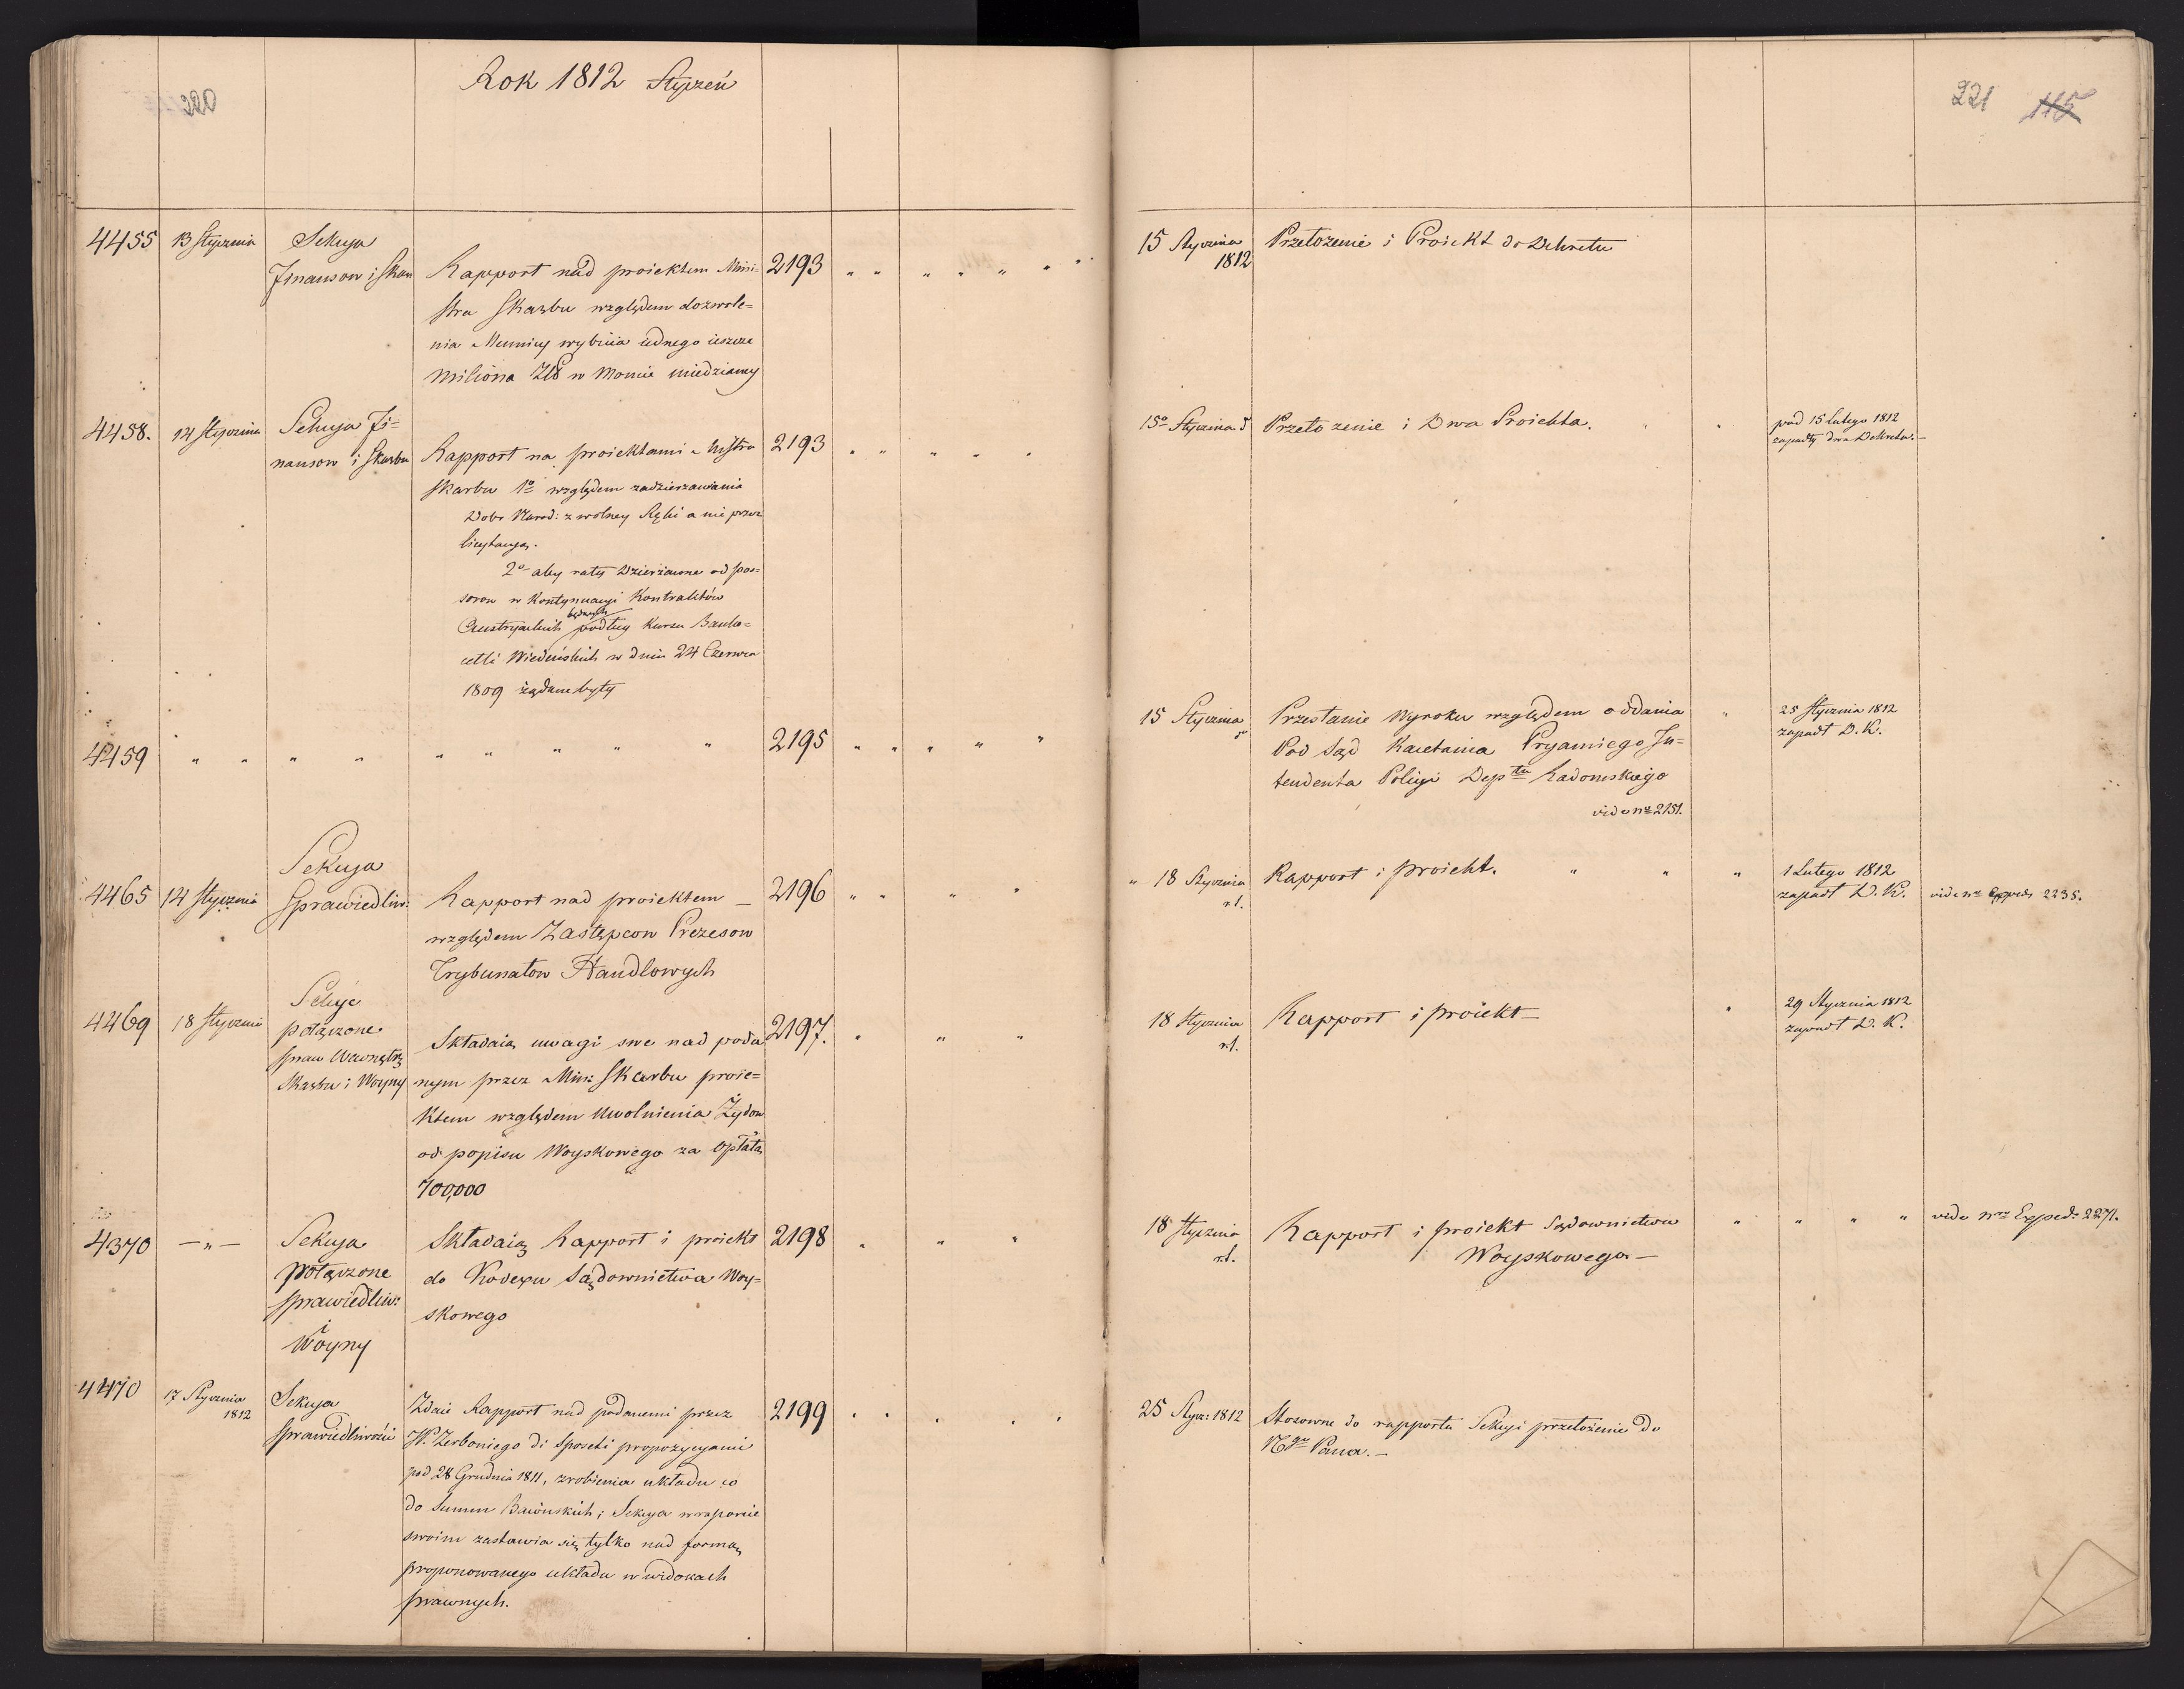 220
Rok 1812 Styczeń
4455 13 Stycznia Sekcya
Finansow i Skar Rapport nad proiektem Mini= 2193 " " " " " " "
stra Skarbu względem dozwole=
nia Mennicy wybicia iednego ieszcze
Miliona Złł w Monie miedzianey
4458. 14 Stycznia Sekcya Fi=
nansow i Skarbu Rapport na proiektami Mstra 2193 " " " " "
Skarbu 1o względem zadzierzawiania
Dobr Narod: z wolney Ręki a nie przez
licytacyą.
2o aby raty Dzierżawne od pos=
sorow w Kontynuacyi Kontraktów
będących
Austryackich podług Kursu Banko=
cetli Wiedeńskich w dniu 24 Czerwca
1809 żądane były
4459 " " " " " " " " " 2195 " " " " "
Sekcya
4465 14 Stycznia Sprawiedliw: Rapport nad proiektem — 2196 " " " "
względem Zastępcow Prezesow
Trybunałow Handlowych
Sekcye
4469 18 Stycznia połączone Składaią uwagi swe nad poda 2197. " " "
spraw Wewnętrz
Skarbu i Woyny nym przez Min: Skarbu proie=
ktem względem Uwolnienia Żydow
od popisu Woyskowego za opłatą
700,000
4370 —"— Sekcya Składaią Rapport i proiekt 2198 " " "
połączone do Kodexu Sądownictwa Woy=
sprawiedliw: skowego
i
Woyny
4470 17 Stycznia Sekcya Zdaie Rapport nad podanemi przez 2199 " " " " "
1812
Sprawiedliwości JP. Zerboniego di Sposetti propozycyami
pod 28 Grudnia 1811, zrobienia układu co
do Summ Baiońskich; Sekcya w raporcie
swoim zastawia się tylko nad formą
proponowanego układu w widokach
prawnych.
221 115
15 Stycznia Przełożenie i Proiekt do Dekretu
1812
15o Stycznia d Przełożenie i Dwa Proiekta. " " pod 15 Lutego 1812
zapadły dwa Dekreta.—
15 Stycznia Przesłanie Wyroku względem oddania " 25 Stycznia 1812
Pod Sąd Kaietania Pryamiego In= zapadł D. K.
tendenta Policyi Deptu Radomskiego
vide nro 2151.
" 18 Stycznia Rapport i proiekt. " " " 1 Lutego 1812
r.t. zapadł D. K. vide nro Expeds 2235.
18 Stycznia Rapport i proiekt— " 29 Stycznia 1812
r.t. zapadł D. K.
18 Stycznia Rapport i proiekt Sądownictwa " " " " vide Nro Exped: 2271.
r.t. Woyskowego—
25 Stycz: 1812 Stosowne do rapportu Sekcyi przełożenie do
Nego Pana.—